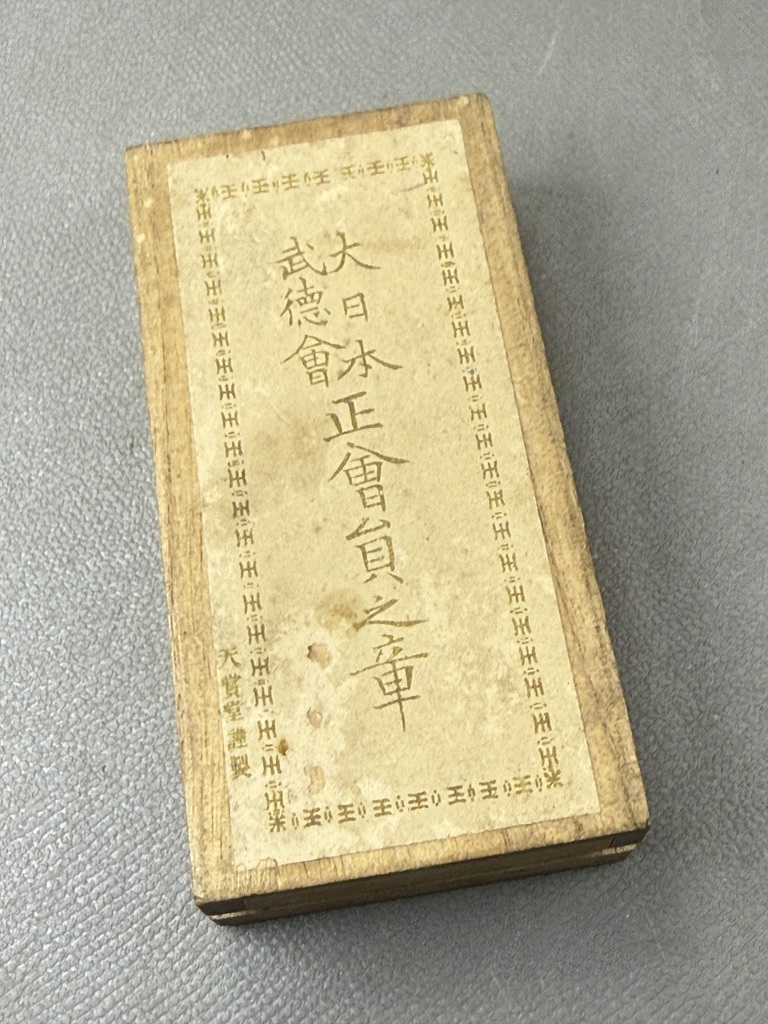 大日本
武德會
正會員之章
天賞堂謹製